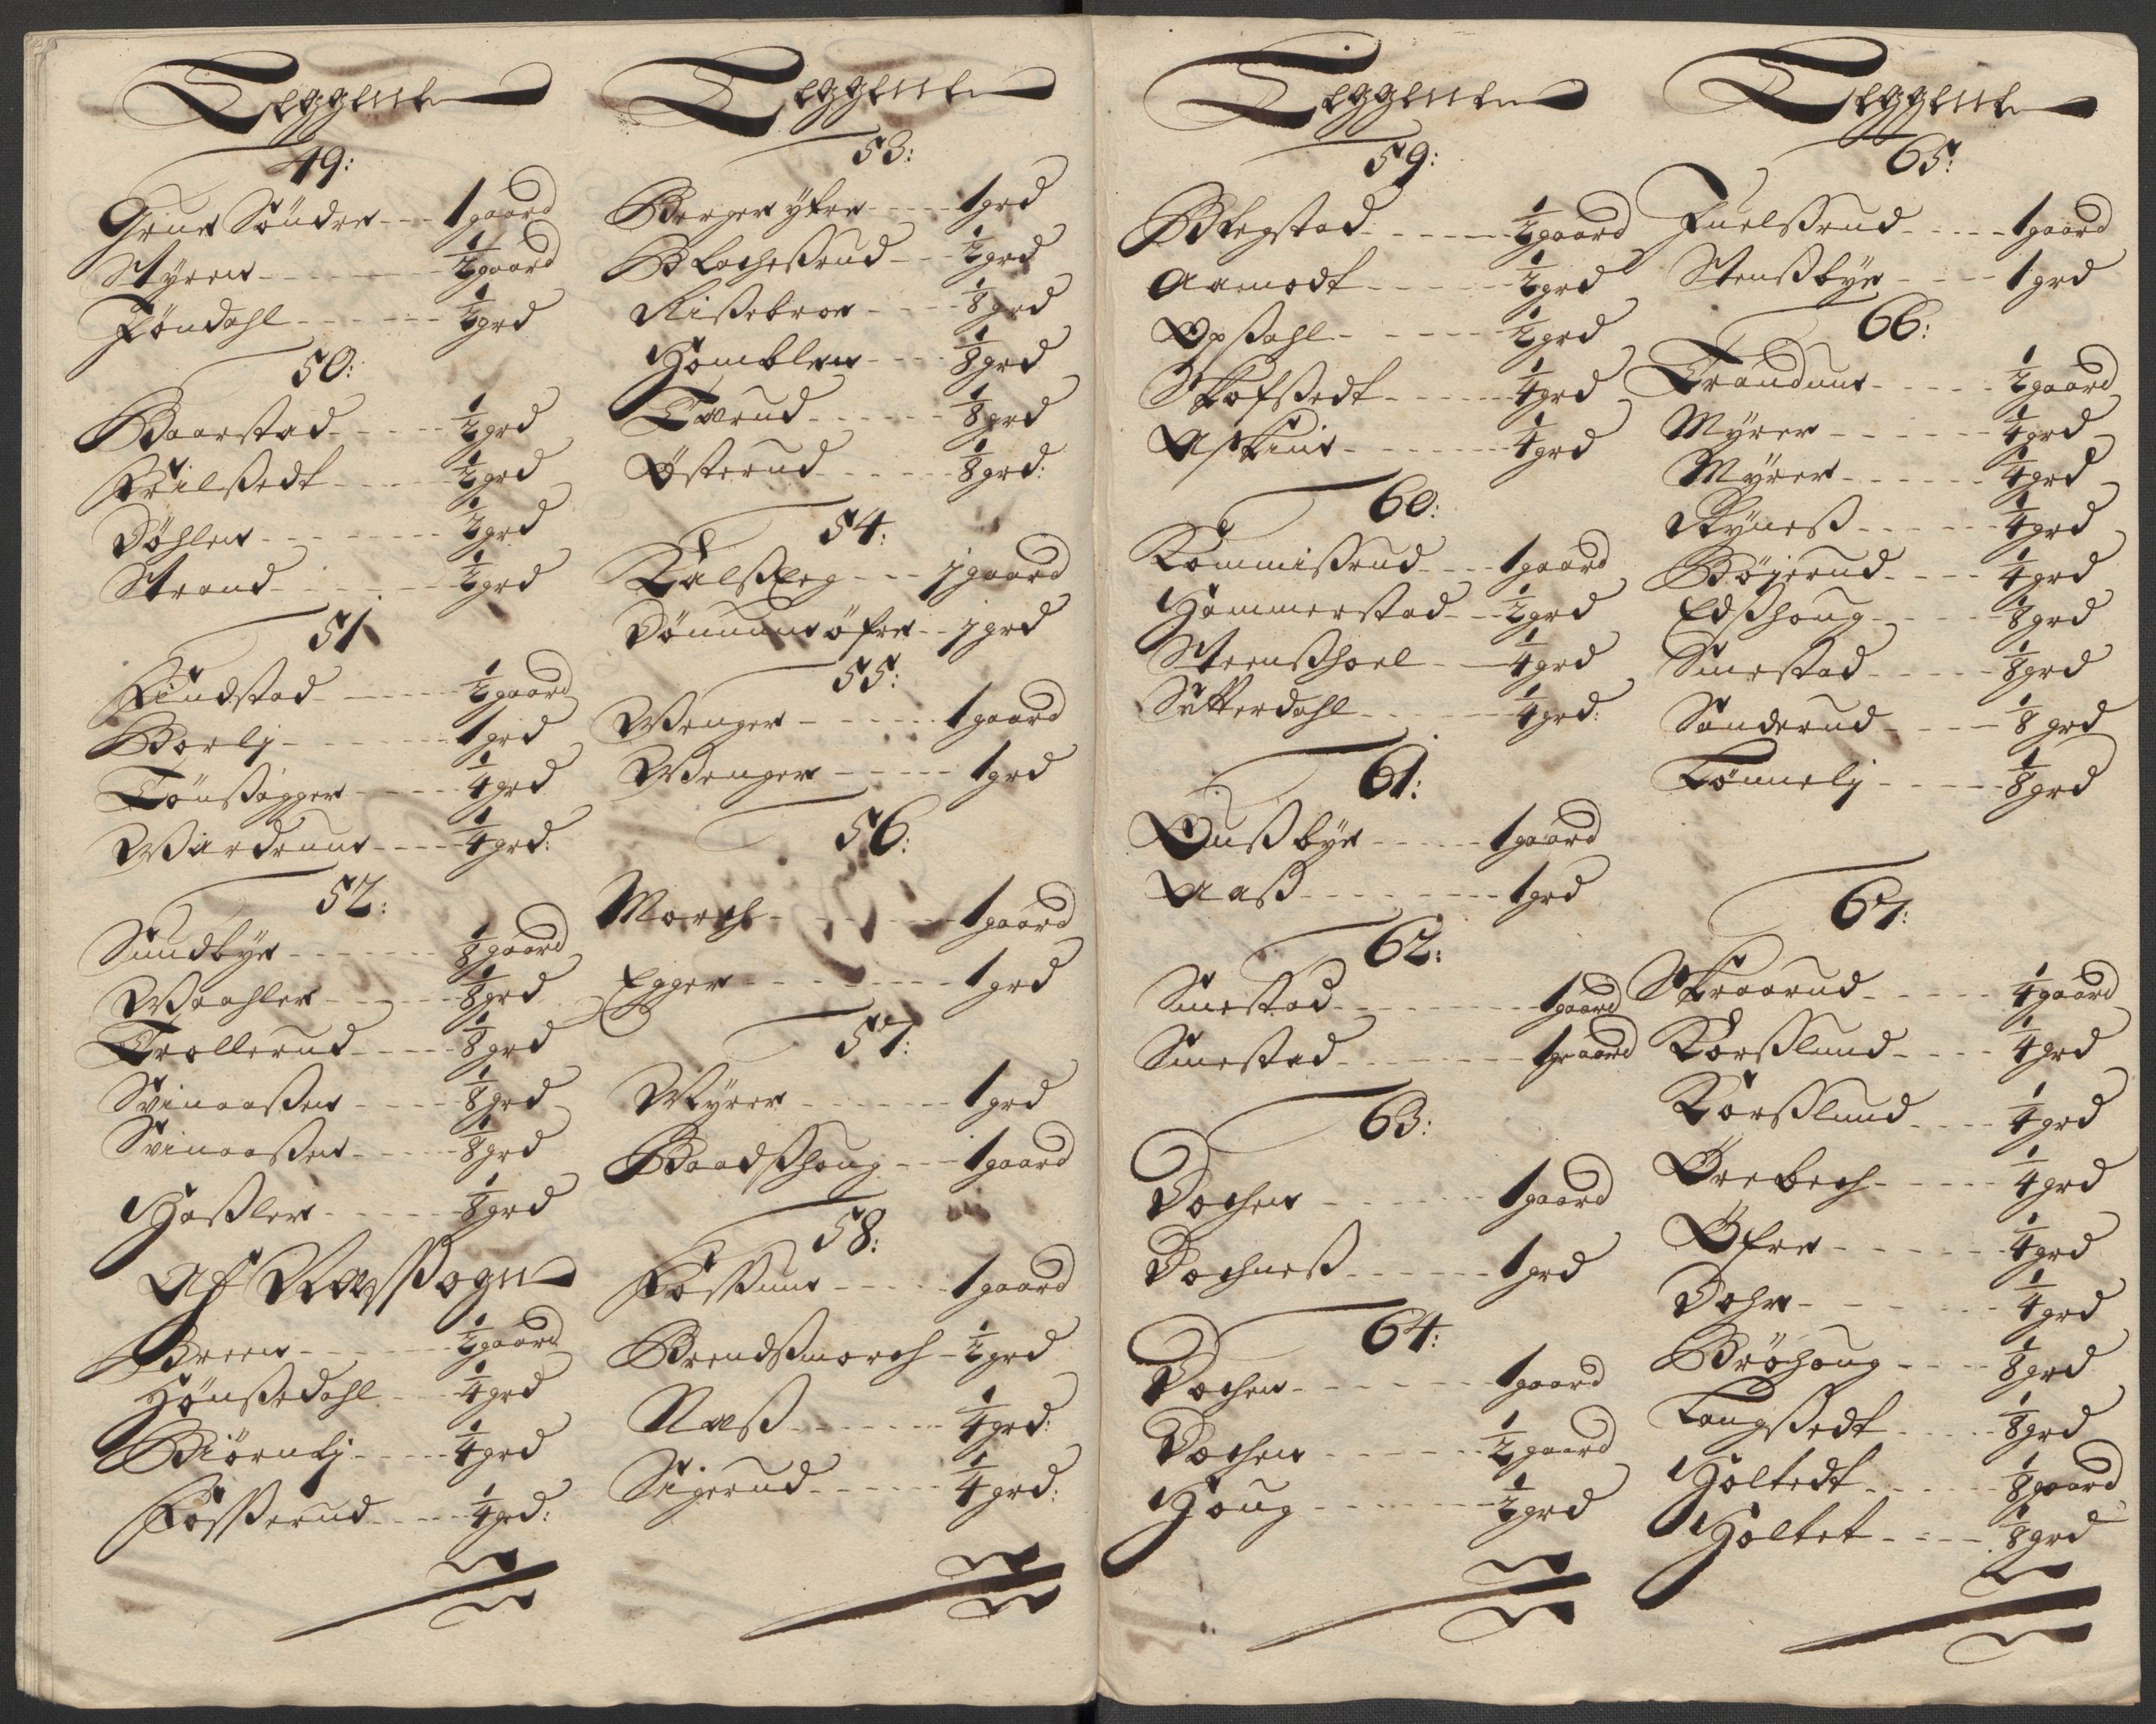 Leggene
49:
Grue Söndre - - - 1 gaard
Styren - - - 1/2 gaard
Föndahl - - - 1/2 grd
50:
Baarstad - - - 1/2 grd
Frilßedt - - - 1/2 grd
Döhlen - - - 1/2 grd
Strand - - - 1/2 grd
51
Findstad - - - 1/2 gaard
Borlj - - - 1 grd
Tönßagger - - - 1/4 grd
- - - 1/4 grd:
52:
Sundbye - - - 1/8 gaard
Waahler - - - 1/8 grd
Trollerud - - - 1/8 grd
Svinaaßen - - - 1/8 grd
Svinaaßen - - - 1/8 grd
Haßler - - - 1/8 grd
Af Næsßogn
Breen - - - 1/2 gaard
Hönßedahl - - - 1/4 grd
Biörnlj - - - 1/4 grd
Foßerud - - - 1/4 grd:
Leggene
53:
Berger yfre - - - 1 grd
Blacheßrud - - - 1/2 grd
Rißebroe - - - 1/8 grd
Homblen - - - 1/8 grd
Tærud - - - 1/8 grd
Østerud - - - 1/8 grd:
54:
Kalßeg - - - j gaard
Dönnum öfre - - j grd
55:
Wenger - - - 1 gaard
Wenger - - - 1 grd
56:
March - - - 1 gaard
Egger - - - 1 grd
57:
Myrer - - - 1 grd
Baadßhoug - - - 1 gaard
58:
Foßum - - - 1 gaard
Brendßmorch - 1/2 grd
Næß - - - 1/4 grd:
Sigerud - - - 1/4 grd:
Leggene
59:
Blegstad - - - 1/2 gaard
Aamodt - - - 1/2 grd
Opßahl - - - 1/2 grd
Kofßedt - - - 1/4 grd
Askim - - - 1/4 grd
60:
Kommißrud - - - 1 gaard
Hammerstad - - 1/2 grd
Steenßhoel - - 1/4 grd
Sætterdahl - - - 1/4 grd:
61:
Oußbye - - - 1 gaard
Aaß - - - 1 grd
62:
Smestad - - - 1 gaard
Smestad - - - 1 graard
63:
Dochen - - - 1 gaard
Dochneß - - - 1 grd
64:
Dochen - - - 1 gaard
Dochen - - - 1/2 gaard
Houg - - - 1/2 grd
Leggene
65:
Juelßrud - - - 1 gaard
Stenßbye - - - 1 grd
66:
Trandum - - - 1/2 gaard
Myrer - - - 1/4 grd
Myrer - - - 1/4 grd
Ryneß - - - 1/4 grd
Böjerud - - - 1/4 grd
Edßhoug - - - 1/8 grd
Smestad - - - 1/8 grd
Sanderud - - - 1/8 grd
Tönnelj - - - 1/8 grd
67:
Skraarud - - - 1/4 gaard
Korßlund - - - 1/4 grd
Korßlund - - - 1/4 grd
Ørebech - - - 1/4 grd
Øfre - - - 1/4 grd
Dohr - - - 1/4 grd
Bröhoug - - - 1/8 grd
Langßedt - - - 1/8 grd
Holtedt - - - 1/8 gaard
Holtet - - - 1/8 grd